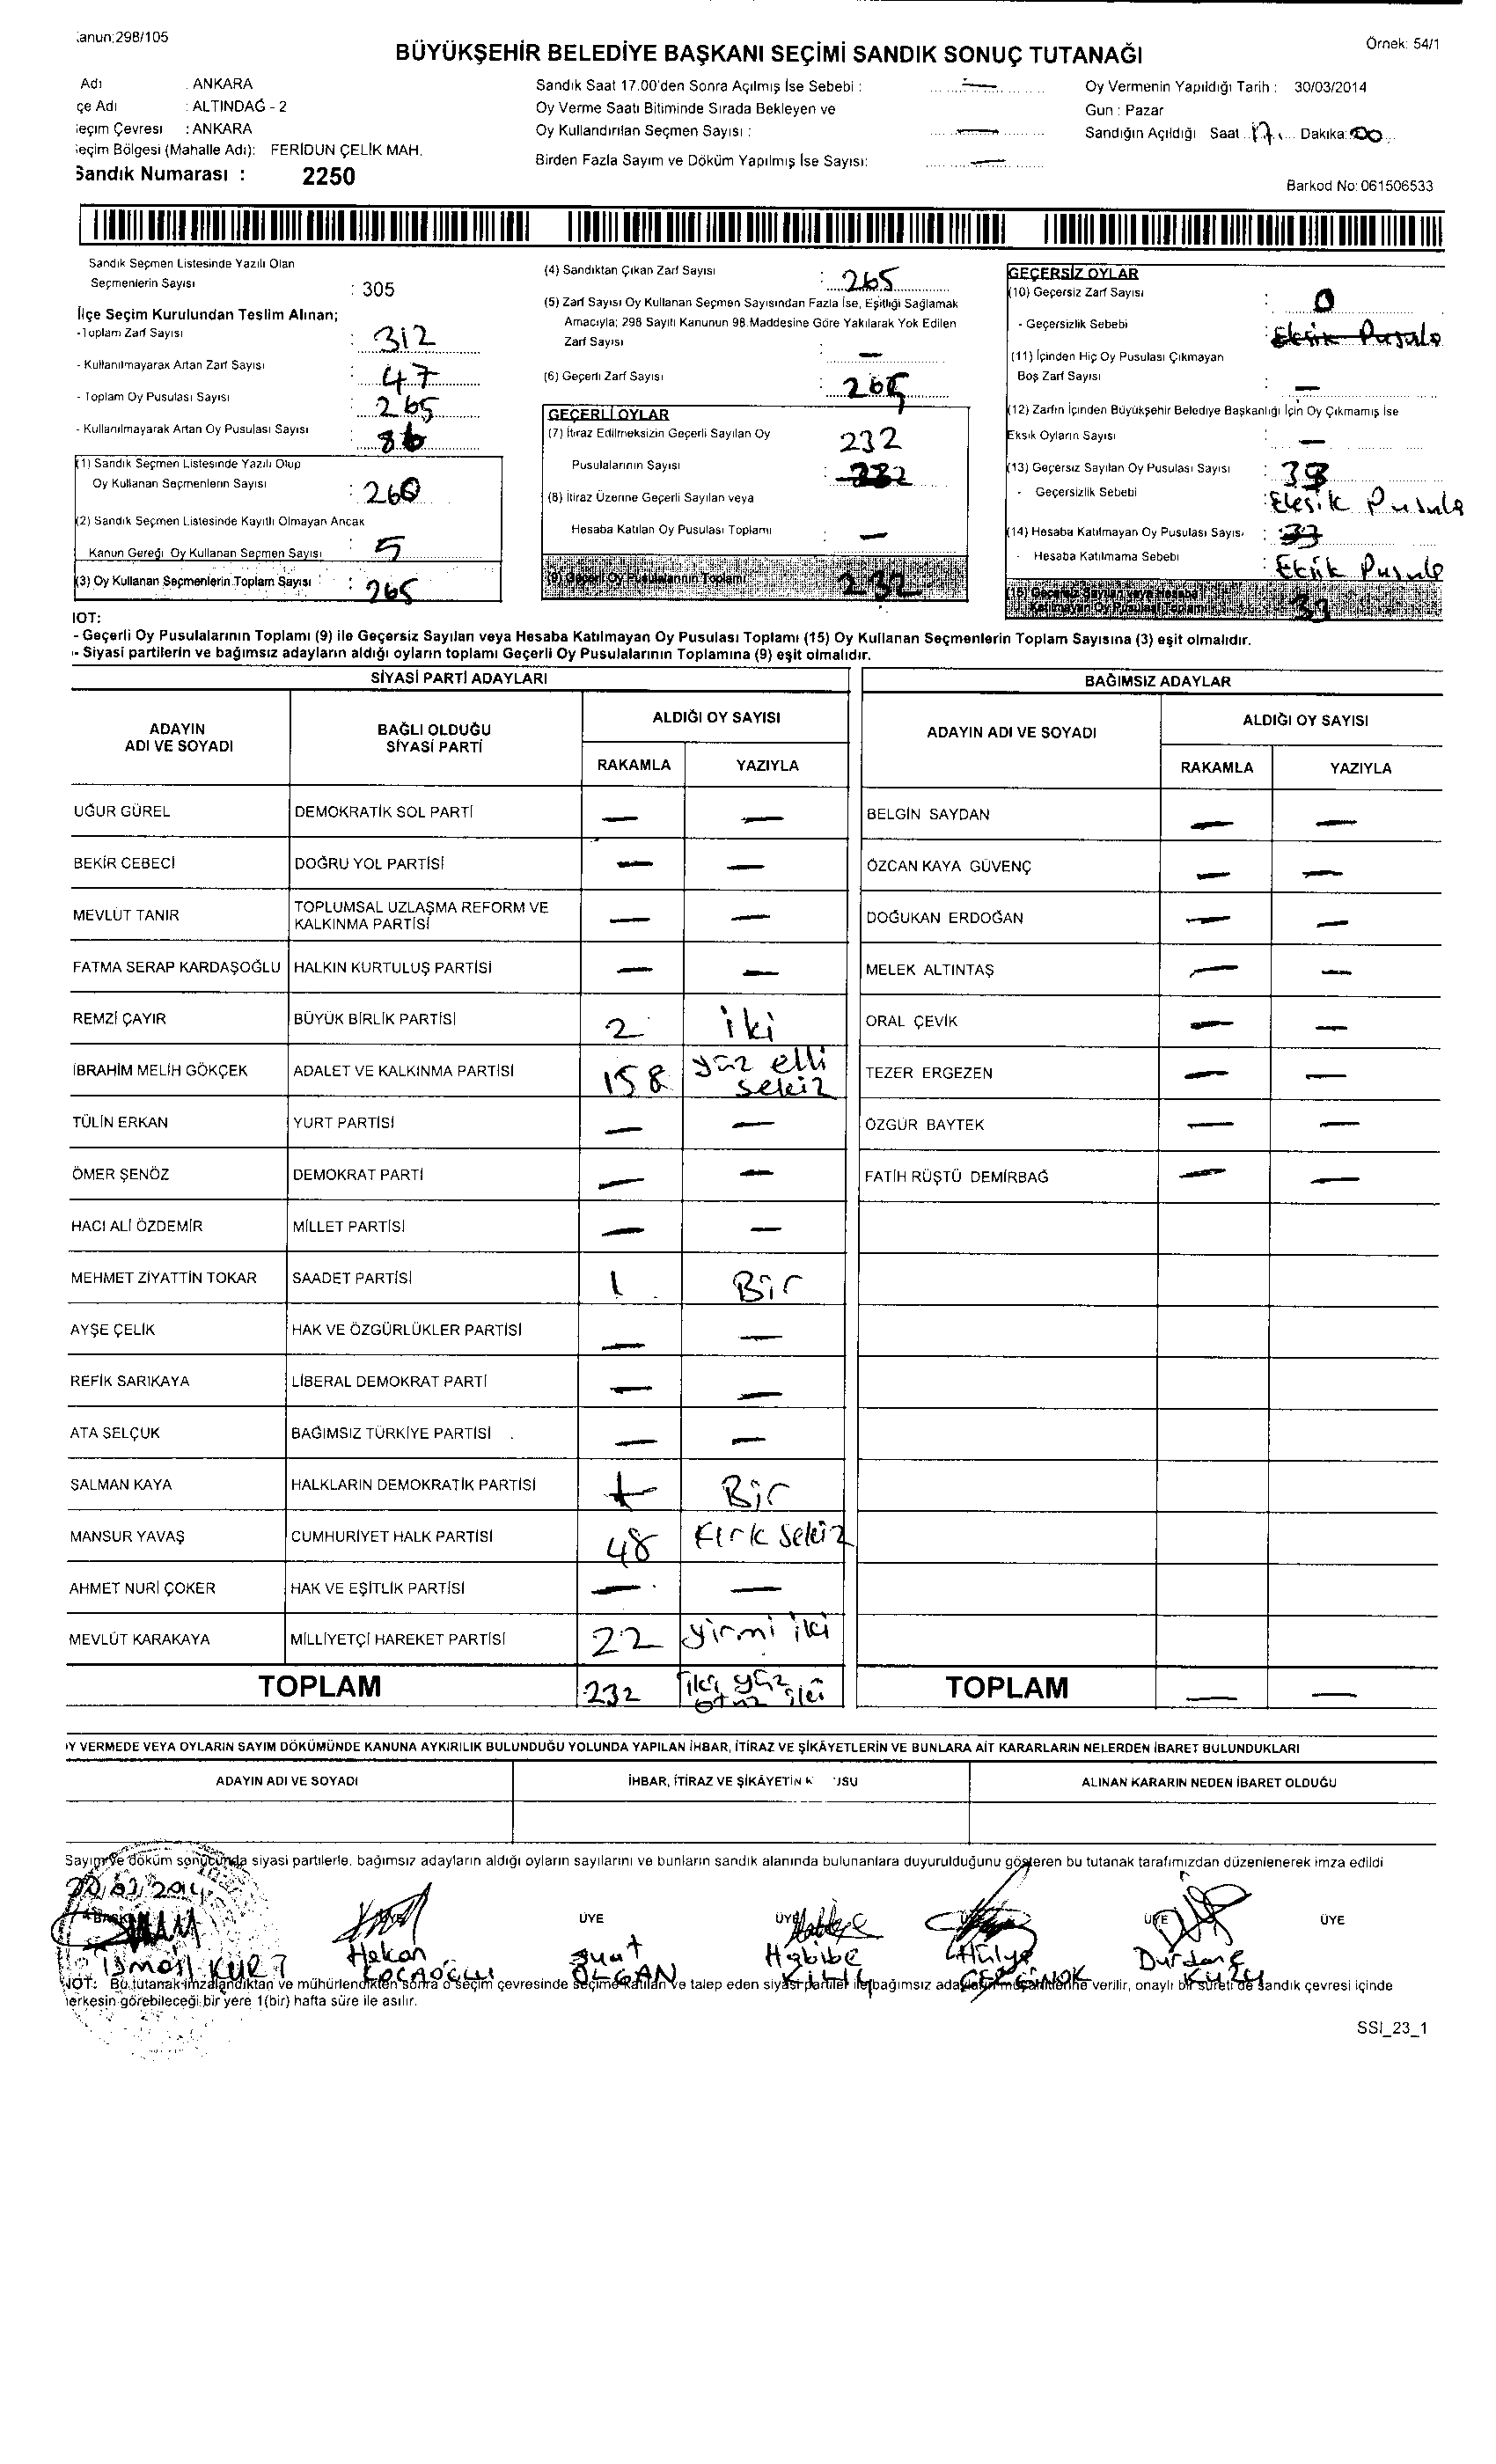 anun:298/105
Örnek: 54/1
BÜYÜKŞEHİR BELEDİYE BAŞKANI SEÇİMİ SANDIK SONUÇ TUTANAĞI
Adı : ANKARA
çe Adı : ALTINDAĞ - 2
eçim Çevresi : ANKARA
eçim Bölgesi (Mahalle Adı): FERİDUN ÇELİK MAH.
Sandık Numarası : 2250
Sandık Saat 17.00'den Sonra Açılmış İse Sebebi : —
Oy Verme Saati Bitiminde Sırada Bekleyen ve
Oy Kullandırılan Seçmen Sayısı : —
Birden Fazla Sayım ve Döküm Yapılmış İse Sayısı: —
Oy Vermenin Yapıldığı Tarih : 30/03/2014
Gün : Pazar
Sandığın Açıldığı Saat 17 Dakika: 00
Barkod No: 061506533
Sandık Seçmen Listesinde Yazılı Olan
Seçmenlerin Sayısı : 305
İlçe Seçim Kurulundan Teslim Alınan;
-Toplam Zarf Sayısı : 312
- Kullanılmayarak Artan Zarf Sayısı : 47
- Toplam Oy Pusulası Sayısı : 265
- Kullanılmayarak Artan Oy Pusulası Sayısı
(1) Sandık Seçmen Listesinde Yazılı Olup
Oy Kullanan Seçmenlerin Sayısı : 260
(2) Sandık Seçmen Listesinde Kayıtlı Olmayan Ancak
Kanun Gereği Oy Kullanan Seçmen Sayısı : 5
(3) Oy Kullanan Seçmenlerin Toplam Sayısı : 265
(4) Sandıktan Çıkan Zarf Sayısı : 265
(5) Zarf Sayısı Oy Kullanan Seçmen Sayısından Fazla İse, Eşitliği Sağlamak
Amacıyla; 298 Sayılı Kanunun 98.Maddesine Göre Yakılarak Yok Edilen
Zarf Sayısı : —
(6) Geçerli Zarf Sayısı : 265
GEÇERLİ OYLAR
(7) İtiraz Edilmeksizin Geçerli Sayılan Oy 232
Pusulalarının Sayısı : 232
(8) İtiraz Üzerine Geçerli Sayılan veya
Hesaba Katılan Oy Pusulası Toplamı : —
(9) Geçerli Oy Pusulalarının Toplamı 232
GEÇERSİZ OYLAR
(10) Geçersiz Zarf Sayısı : 0
- Geçersizlik Sebebi : Eksik Pusula
(11) İçinden Hiç Oy Pusulası Çıkmayan
Boş Zarf Sayısı : —
(12) Zarfın İçinden Büyükşehir Belediye Başkanlığı İçin Oy Çıkmamış İse
Eksik Oyların Sayısı : —
(13) Geçersiz Sayılan Oy Pusulası Sayısı : 33
- Geçersizlik Sebebi : Eksik Pusula
(14) Hesaba Katılmayan Oy Pusulası Sayıs. : 33
- Hesaba Katılmama Sebebi : Eksik Pusula
(15) Geçersiz Sayılan veya Hesaba
Katılmayan Oy Pusulası Toplamı 33
IOT:
- Geçerli Oy Pusulalarının Toplamı (9) ile Geçersiz Sayılan veya Hesaba Katılmayan Oy Pusulası Toplamı (15) Oy Kullanan Seçmenlerin Toplam Sayısına (3) eşit olmalıdır.
- Siyasi partilerin ve bağımsız adayların aldığı oyların toplamı Geçerli Oy Pusulalarının Toplamına (9) eşit olmalıdır.
SİYASİ PARTİ ADAYLARI BAĞIMSIZ ADAYLAR
ADAYIN ADI VE SOYADI BAĞLI OLDUĞU SİYASİ PARTİ ALDIĞI OY SAYISI ADAYIN ADI VE SOYADI ALDIĞI OY SAYISI
RAKAMLA YAZIYLA RAKAMLA YAZIYLA
UĞUR GÜREL DEMOKRATİK SOL PARTİ — — BELGİN SAYDAN — —
BEKİR CEBECİ DOĞRU YOL PARTİSİ — — ÖZCAN KAYA GÜVENÇ — —
MEVLÜT TANIR TOPLUMSAL UZLAŞMA REFORM VE KALKINMA PARTİSİ — — DOĞUKAN ERDOĞAN — —
FATMA SERAP KARDAŞOĞLU HALKIN KURTULUŞ PARTİSİ — — MELEK ALTINTAŞ — —
REMZİ ÇAYIR BÜYÜK BİRLİK PARTİSİ 2 iki ORAL ÇEVİK — —
İBRAHİM MELİH GÖKÇEK ADALET VE KALKINMA PARTİSİ 158 yüz elli sekiz TEZER ERGEZEN — —
TÜLİN ERKAN YURT PARTİSİ — — ÖZGÜR BAYTEK — —
ÖMER ŞENÖZ DEMOKRAT PARTİ — — FATİH RÜŞTÜ DEMİRBAĞ — —
HACI ALİ ÖZDEMİR MİLLET PARTİSİ — —
MEHMET ZİYATTİN TOKAR SAADET PARTİSİ 1 Bir
AYŞE ÇELİK HAK VE ÖZGÜRLÜKLER PARTİSİ — —
REFİK SARIKAYA LİBERAL DEMOKRAT PARTİ — —
ATA SELÇUK BAĞIMSIZ TÜRKİYE PARTİSİ — —
SALMAN KAYA HALKLARIN DEMOKRATİK PARTİSİ 1 Bir
MANSUR YAVAŞ CUMHURİYET HALK PARTİSİ 48 Kırk sekiz
AHMET NURİ ÇOKER HAK VE EŞİTLİK PARTİSİ — —
MEVLÜT KARAKAYA MİLLİYETÇİ HAREKET PARTİSİ 22 yirmi iki
TOPLAM 232 iki yüz otuz iki TOPLAM — —
Y VERMEDE VEYA OYLARIN SAYIM DÖKÜMÜNDE KANUNA AYKIRILIK BULUNDUĞU YOLUNDA YAPILAN İHBAR, İTİRAZ VE ŞİKÂYETLERİN VE BUNLARA AİT KARARLARIN NELERDEN İBARET BULUNDUKLARI
ADAYIN ADI VE SOYADI İHBAR, İTİRAZ VE ŞİKÂYETİN K USU ALINAN KARARIN NEDEN İBARET OLDUĞU
Sayım ve döküm sonucunda siyasi partilerle, bağımsız adayların aldığı oyların sayılarını ve bunların sandık alanında bulunanlara duyurulduğunu gösteren bu tutanak tarafımızdan düzenlenerek imza edildi
ÜYE ÜYE ÜYE ÜYE
İsmail KURT Hakan KOCAOĞLU Suat OLGAN Habibe Hülya Durdane KUZU
NOT: Bu tutanak imzalandıktan ve mühürlendikten sonra o seçim çevresinde seçime katılan ve talep eden siyasi partiler ile bağımsız adayların müşahitlerine verilir, onaylı bir sureti de sandık çevresi içinde
herkesin görebileceği bir yere 1(bir) hafta süre ile asılır.
SSI_23_1